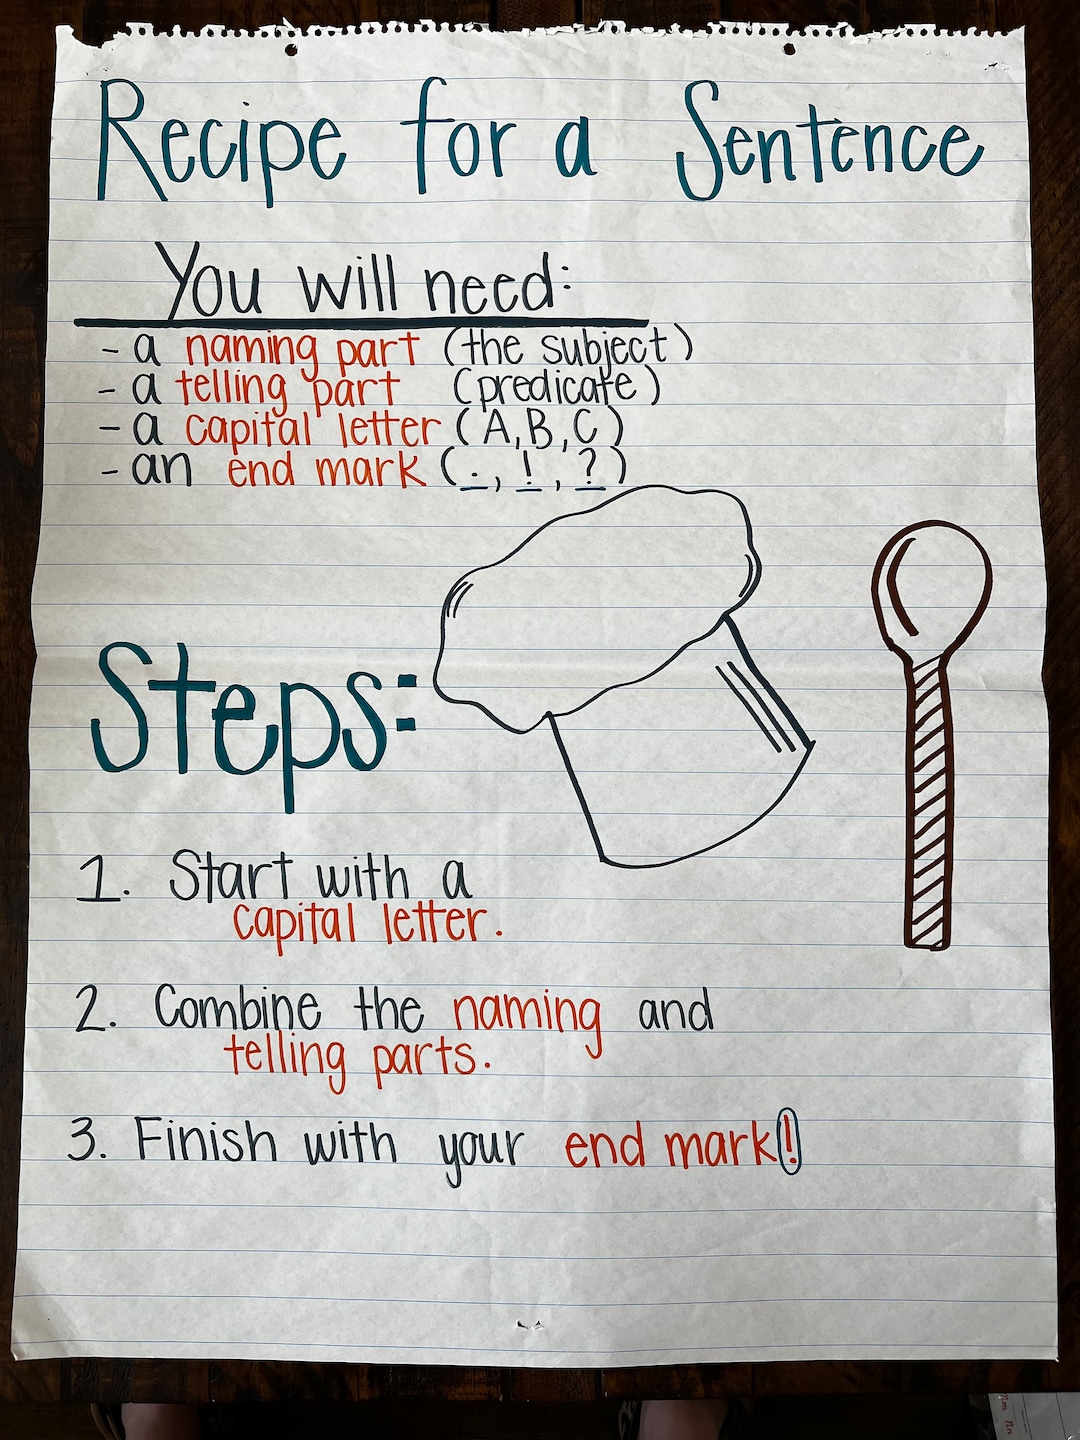 Recipe for a Sentence
You will need:
- a naming part (the subject)
- a telling part (predicate)
- a capital letter (A, B, C)
- an end mark (., !, ?)
Steps:
1. Start with a
capital letter.
2. Combine the naming and
telling parts.
3. Finish with your end mark!